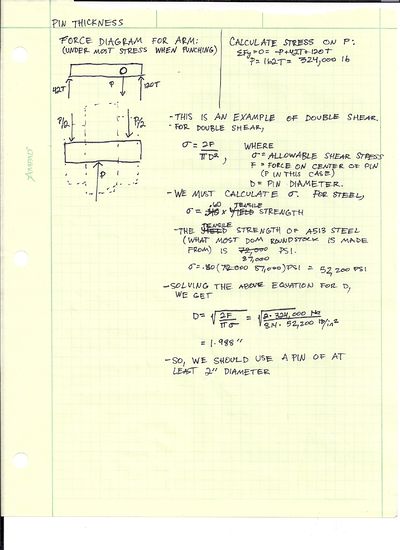 PIN THICKNESS
FORCE DIAGRAM FOR ARM:
(UNDER MOST STRESS WHEN PUNCHING)
CALCULATE STRESS ON P:
ΣFy=0= -P+42T+120T
P=162T = 324,000 lb
42T
P
120T
P/2
P/2
P
- THIS IS AN EXAMPLE OF DOUBLE SHEAR.
FOR DOUBLE SHEAR,
σ = 2F/πD², WHERE
σ = ALLOWABLE SHEAR STRESS
F = FORCE ON CENTER OF PIN
(P IN THIS CASE)
D = PIN DIAMETER.
- WE MUST CALCULATE σ. FOR STEEL,
σ = .60 x TENSILE STRENGTH
- THE TENSILE STRENGTH OF A513 STEEL
(WHAT MOST DOM ROUNDSTOCK IS MADE
FROM) IS 72,000 PSI.
87,000
σ = .60 (72,000 87,000) PSI = 52,200 PSI
- SOLVING THE ABOVE EQUATION FOR D,
WE GET
D = √2F/πσ = √2·324,000 lb/3.14·52,200 lb/in²
= 1.988"
- SO, WE SHOULD USE A PIN OF AT
LEAST 2" DIAMETER